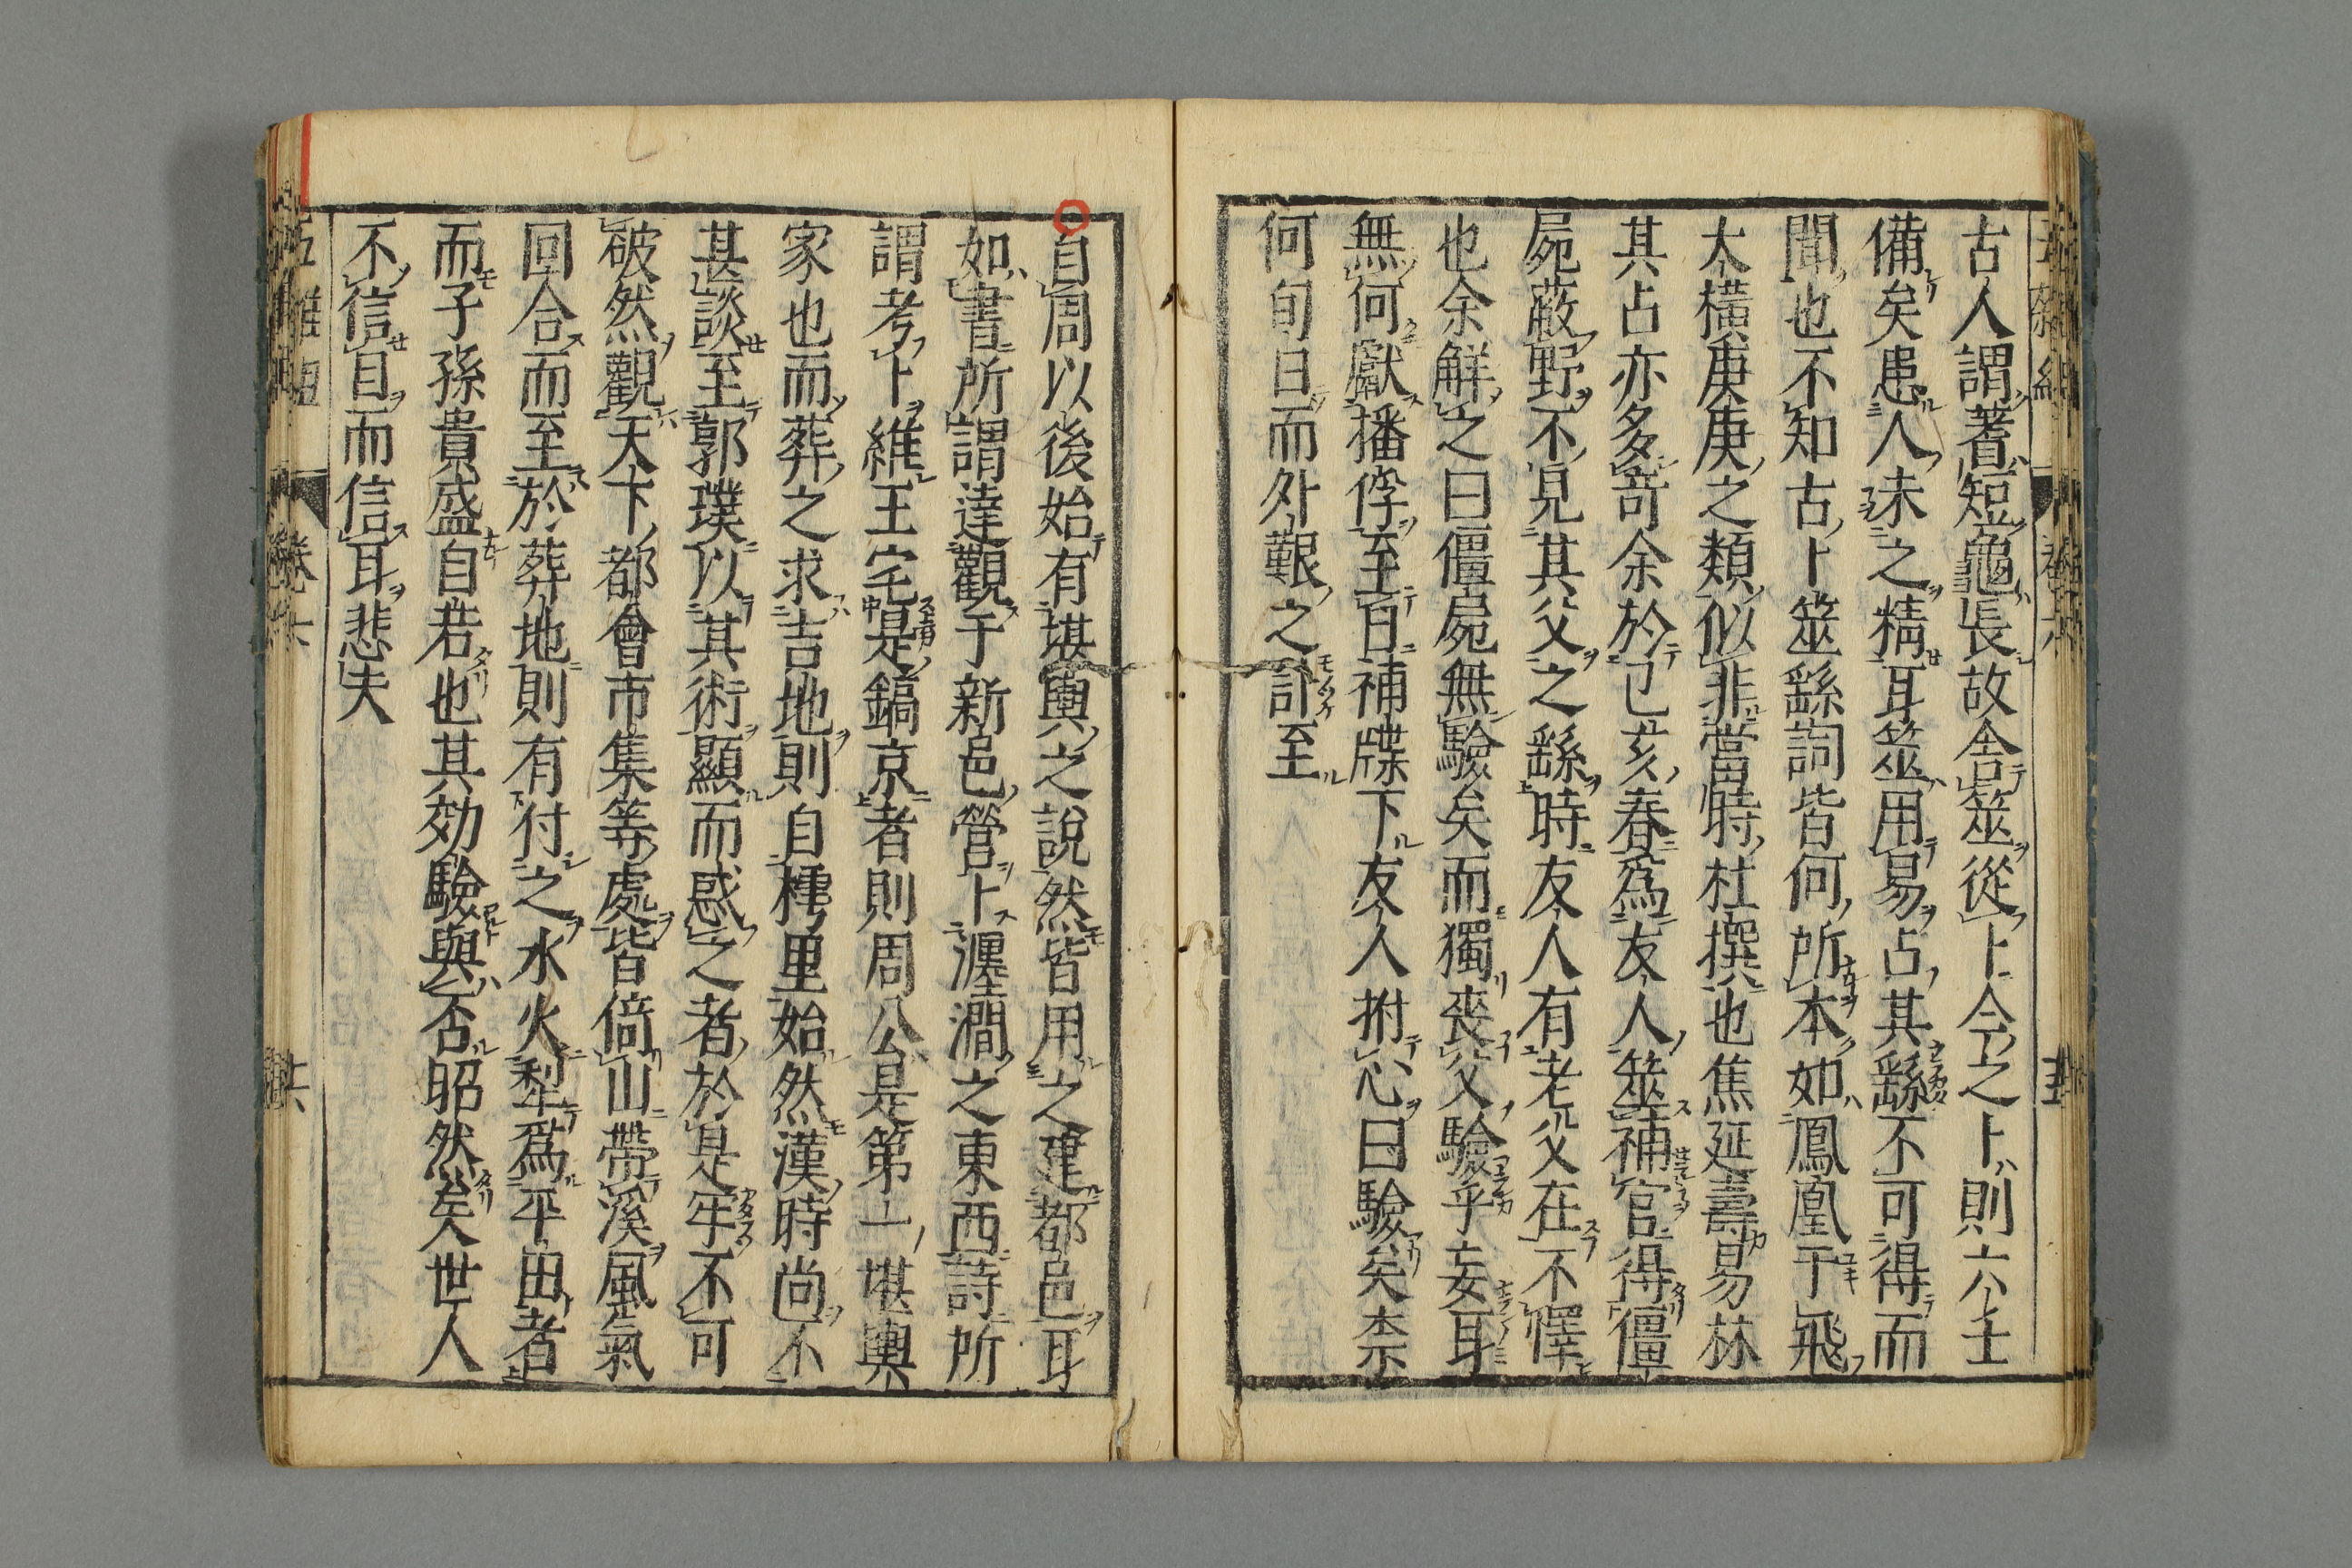 古人謂蓍短龜長故舎筮從卜今之卜則六壬
備矣患人未之精耳筮用易占其繇不可得而
聞也不知古卜筮繇詞皆何所本如鳳凰于飛
大横庚庚之類似非當時杜撰也焦延壽易林
其占亦多竒余於己亥春爲友人筮補官得僵
屍蔽野不見其父之繇時友人有老父在不懌
也余觧之曰僵屍無驗矣而獨喪父驗乎妄耳
無何獻播俘至百補牒下友人拊心曰驗矣柰
何旬日而外艱之訃至
自周以後始有堪輿之說然皆用之建都邑耳
如書所謂達觀于新邑營卜瀍澗之東西詩所
謂考卜維王宅是鎬京者則周公是第一堪輿
家也而葬之求吉地則自樗里始然漢時尚不
甚談至郭璞以其術顯而惑之者於是牢不可
破然觀天下都會市集等處皆倚山帶溪風氣
回合而至於葬地則有付之水火犁爲平田者
而子孫貴盛自若也其効驗與否昭然矣世人
不信目而信耳悲夫